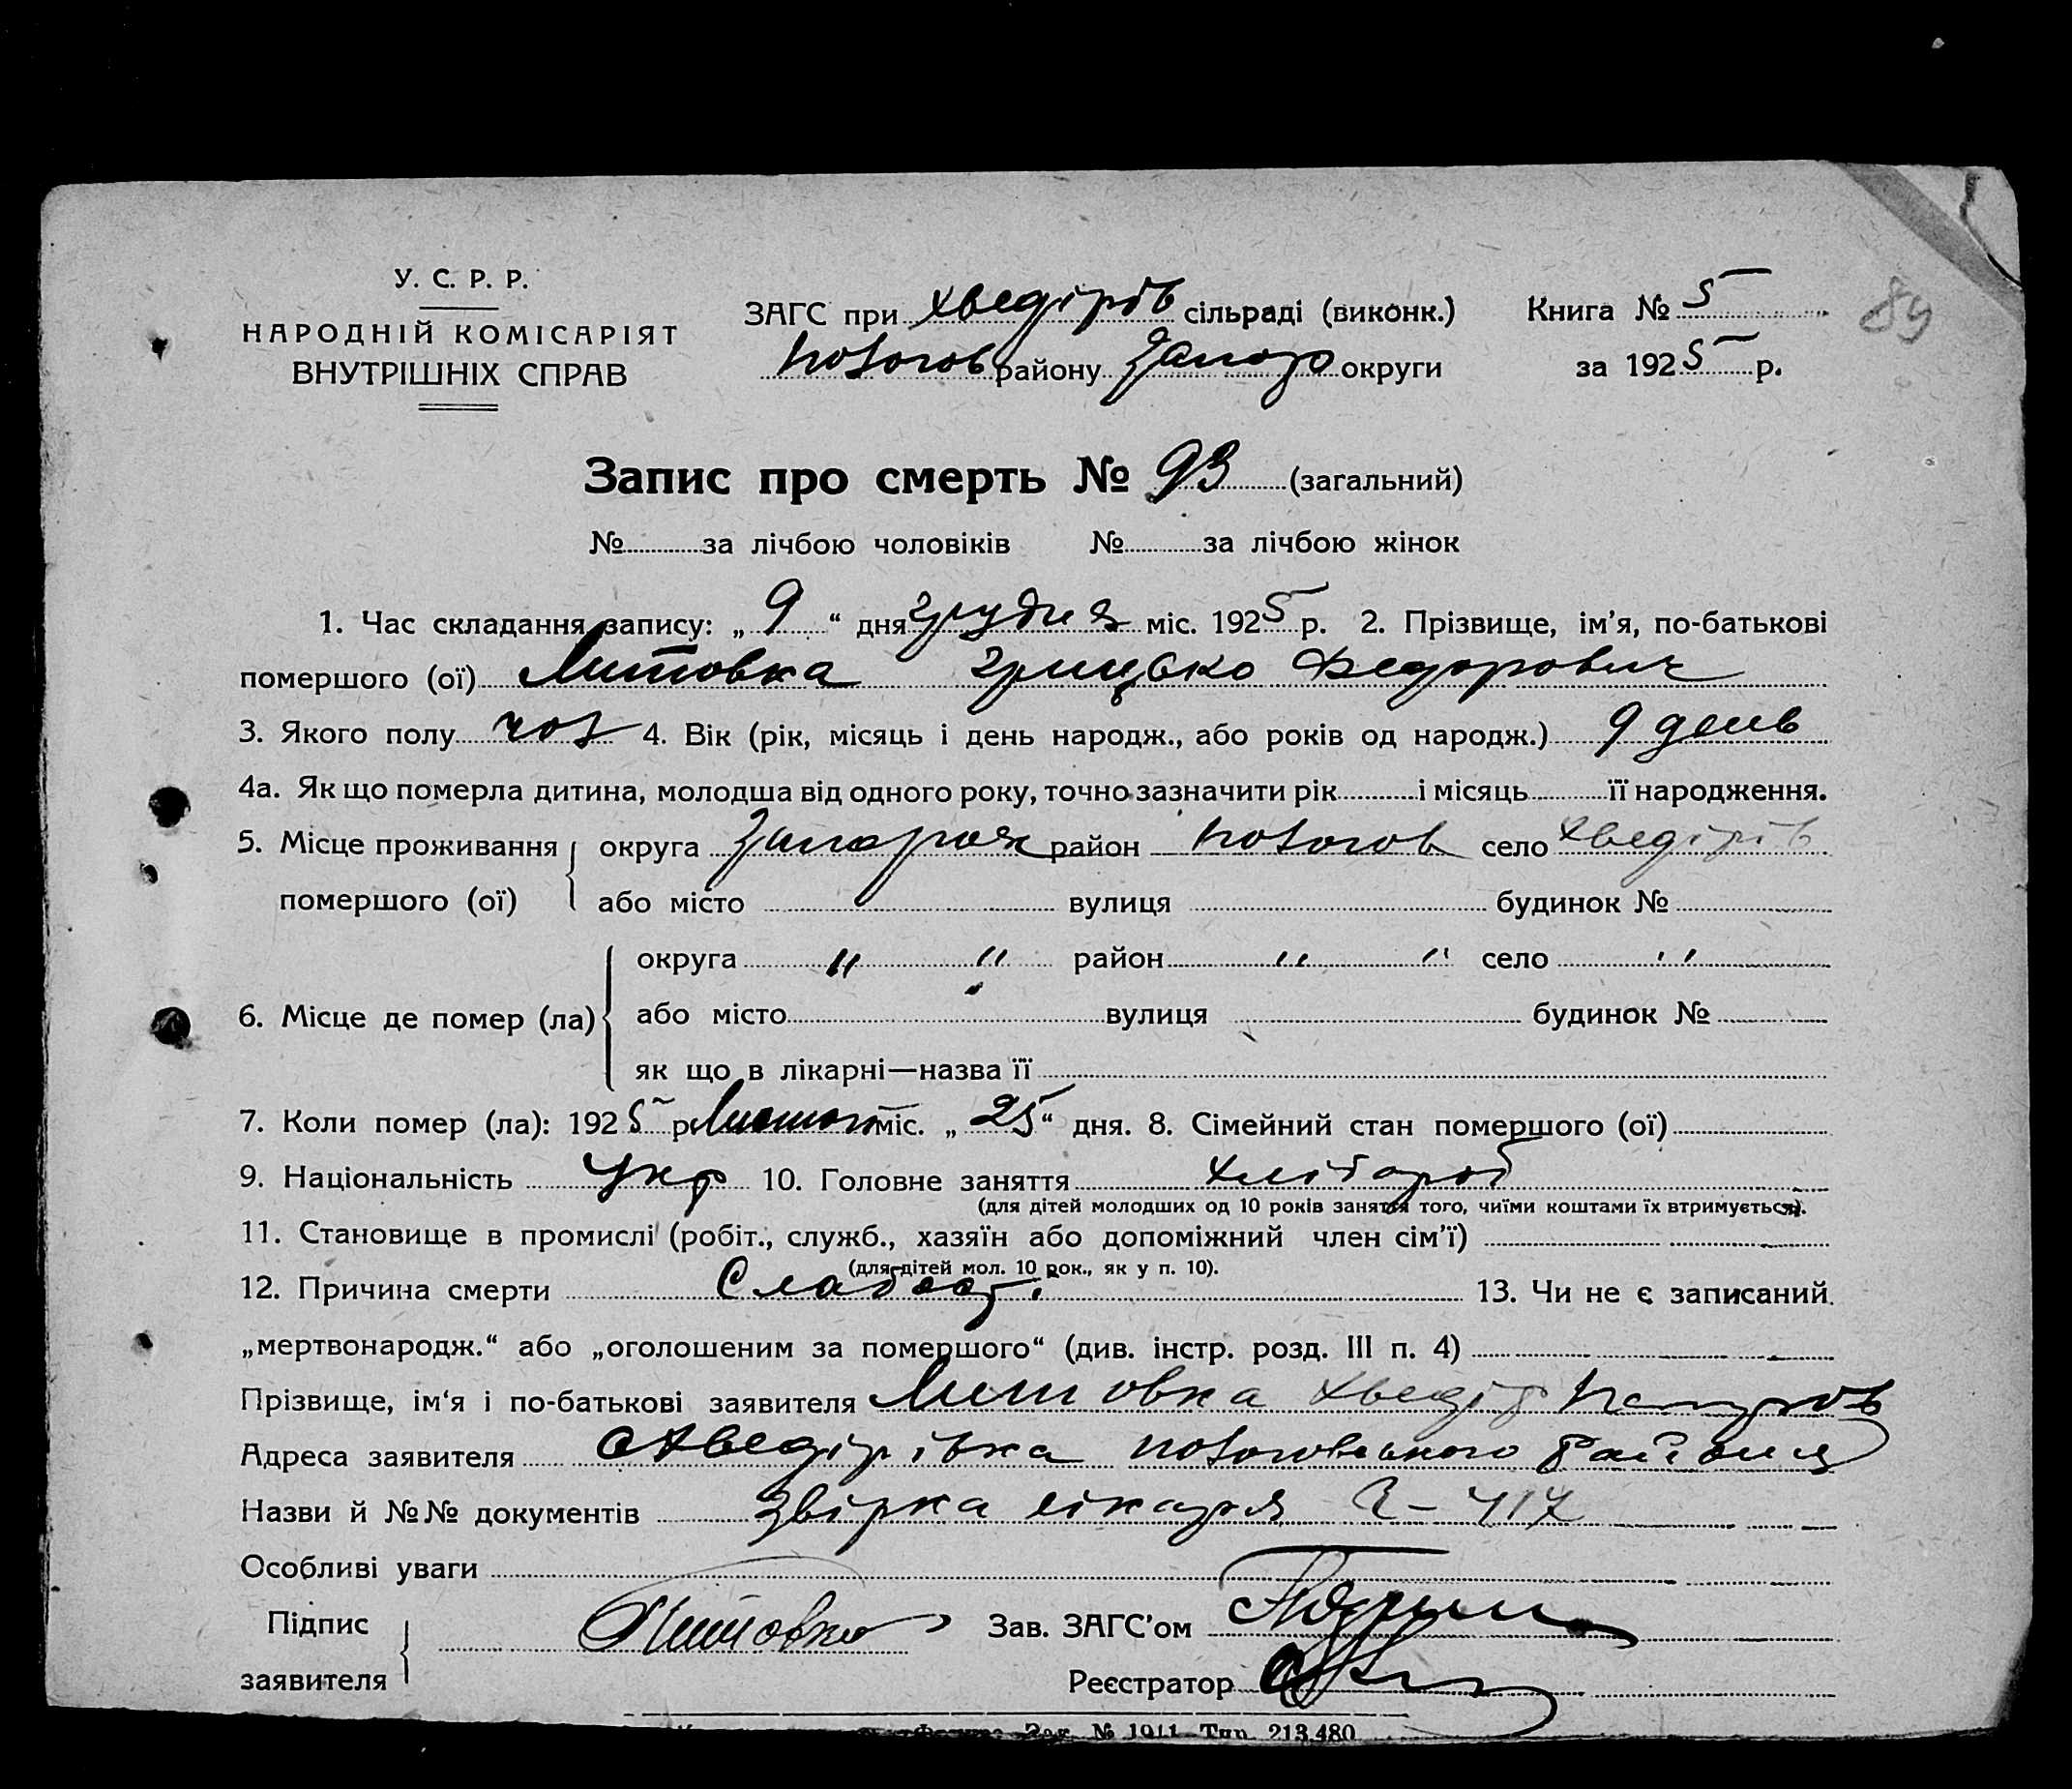 89
У. С. Р. Р.
НАРОДНІЙ КОМІСАРІЯТ
ВНУТРІШНІХ СПРАВ
ЗАГС при Хведірів сільраді (виконк.)
Пологов району Запор округи
Книга № 5
за 1925 р.
Запис про смерть № 93 (загальний)
№ за лічбою чоловіків № за лічбою жінок
1. Час складання запису: „ 9 “ дня грудня міс. 1925 р. 2. Прізвище, ім'я, по-батькові
помершого (ої) Литовка Грицько Федорович
3. Якого полу чол 4. Вік (рік, місяць і день народж., або років од народж.) 9 день
4а. Як що померла дитина, молодша від одного року, точно зазначити рік і місяць її народження.
5. Місце проживання помершого (ої) округа Запорож район Пологов село Хведірів
або місто вулиця будинок №
6. Місце де помер (ла) округа " " район " " село "
або місто вулиця будинок №
як що в лікарні—назва її
7. Коли помер (ла): 1925 р. Листоп міс. „ 25 “ дня. 8. Сімейний стан помершого (ої)
9. Національність Укр 10. Головне заняття хлібороб
(для дітей молодших од 10 років заняття того, чиїми коштами їх втримується).
11. Становище в промислі (робіт., служб., хазяїн або допоміжний член сім'ї)
(для дітей мол. 10 рок., як у п. 10).
12. Причина смерти Слабост. 13. Чи не є записаний
„мертвонародж.“ або „оголошеним за помершого“ (див. інстр. розд. III п. 4)
Прізвище, ім'я і по-батькові заявителя Литовка Хведір
Адреса заявителя с Хведірівка Пологовського Району
Назви й №№ документів лікаря 417
Особливі уваги
Підпис заявителя Литовка
Зав. ЗАГС'ом
Реєстратор
Зак. № 1911 Тир. 213.480